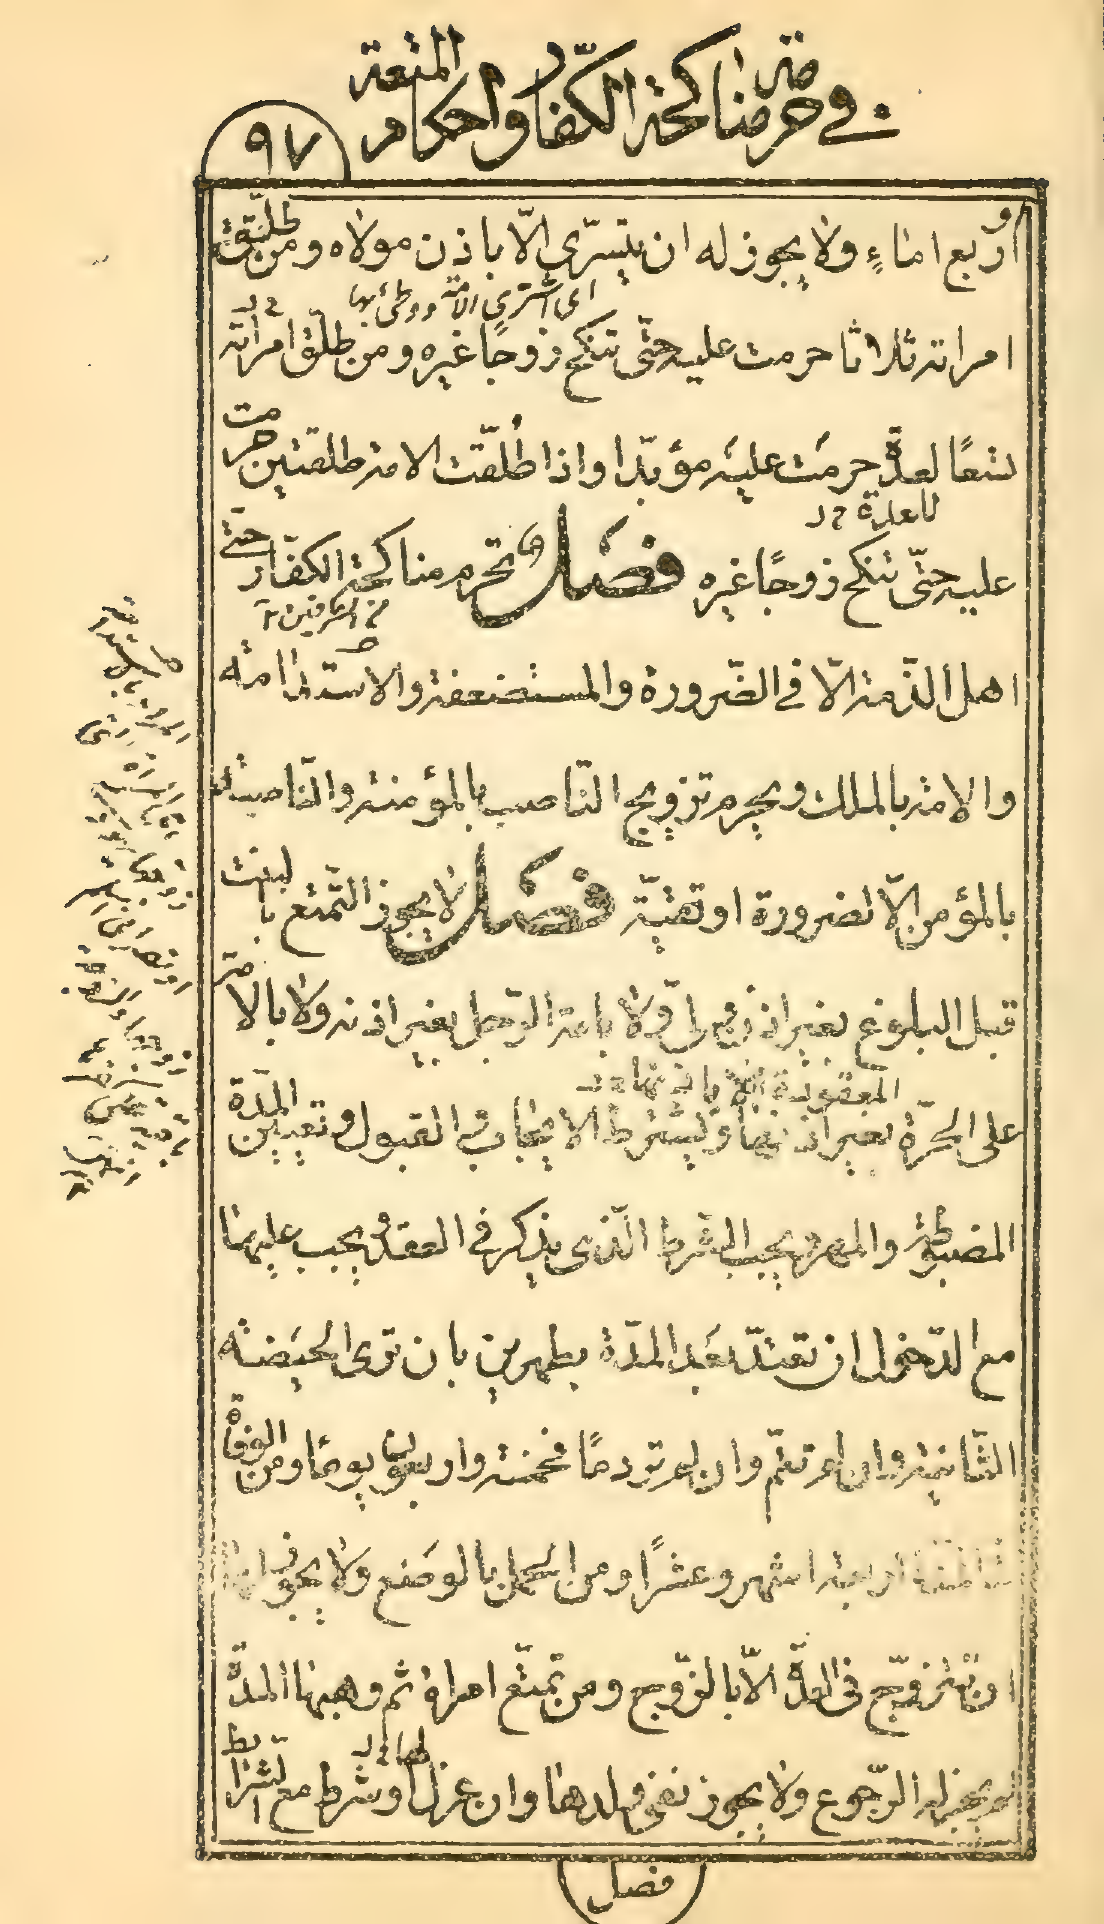 في حرمة مناكحة الكفّار واحكام المتعة
٩٧
أو بع اماءٍ ولا يجوز له ان يتسرّى الّا باذن مولاه ومن طلّق
اى اشترى الامة ووطئ بها
امراته ثلاثا حرمت عليه حتّى تنكح زوجًا غيره ومن طلّق امرأته
تسعًا لعدّة حرمَت عليه مؤبّدا واذا طُلّقت الامة طلقتين حرمت
للعدة خ د
عليه حتّى تنكح زوجًا غيره فصل تحرم مناكحة الكفّار حتّى
اهل الذّمة الّا في الضّرورة والمستضعفة والاستدامة
والامة بالملك ويحرم تزويج النّاصب بالمؤمنة والنّاصبة
بالمؤمن الّا لضرورة او تقيّة فصل لا يجوز التّمتّع بالبنت
قبل البلوغ بغير اذن ولىّ ولا بامة الرّجل بغير اذنه ولا بالامة
على الحرّة بغير اذنها ويشترط الايجاب والقبول وتعيين المدّة
المضبوطة والمهر ويجب الشّرط الّذى يذكر في العقد ويجب عليها
مع الدّخول ان تعتدّ بعد المدّة بطهرين بان ترى الحيضة
الثّانية وان لم تتمّ وان لم تر دمًا فخمسة واربعون يومًا ومن الوفاة
اربعة اشهر وعشرًا ومن الحمل بالوضع ولا يجوز لها
ان تتزوّج في العدّة الّا بالزّوج ومن تمتّع امراة ثم وهبها المدّة
لم يجز له الرّجوع ولا يجوز نفي ولدها وان عزل او شرط مع اشتراط
فصل